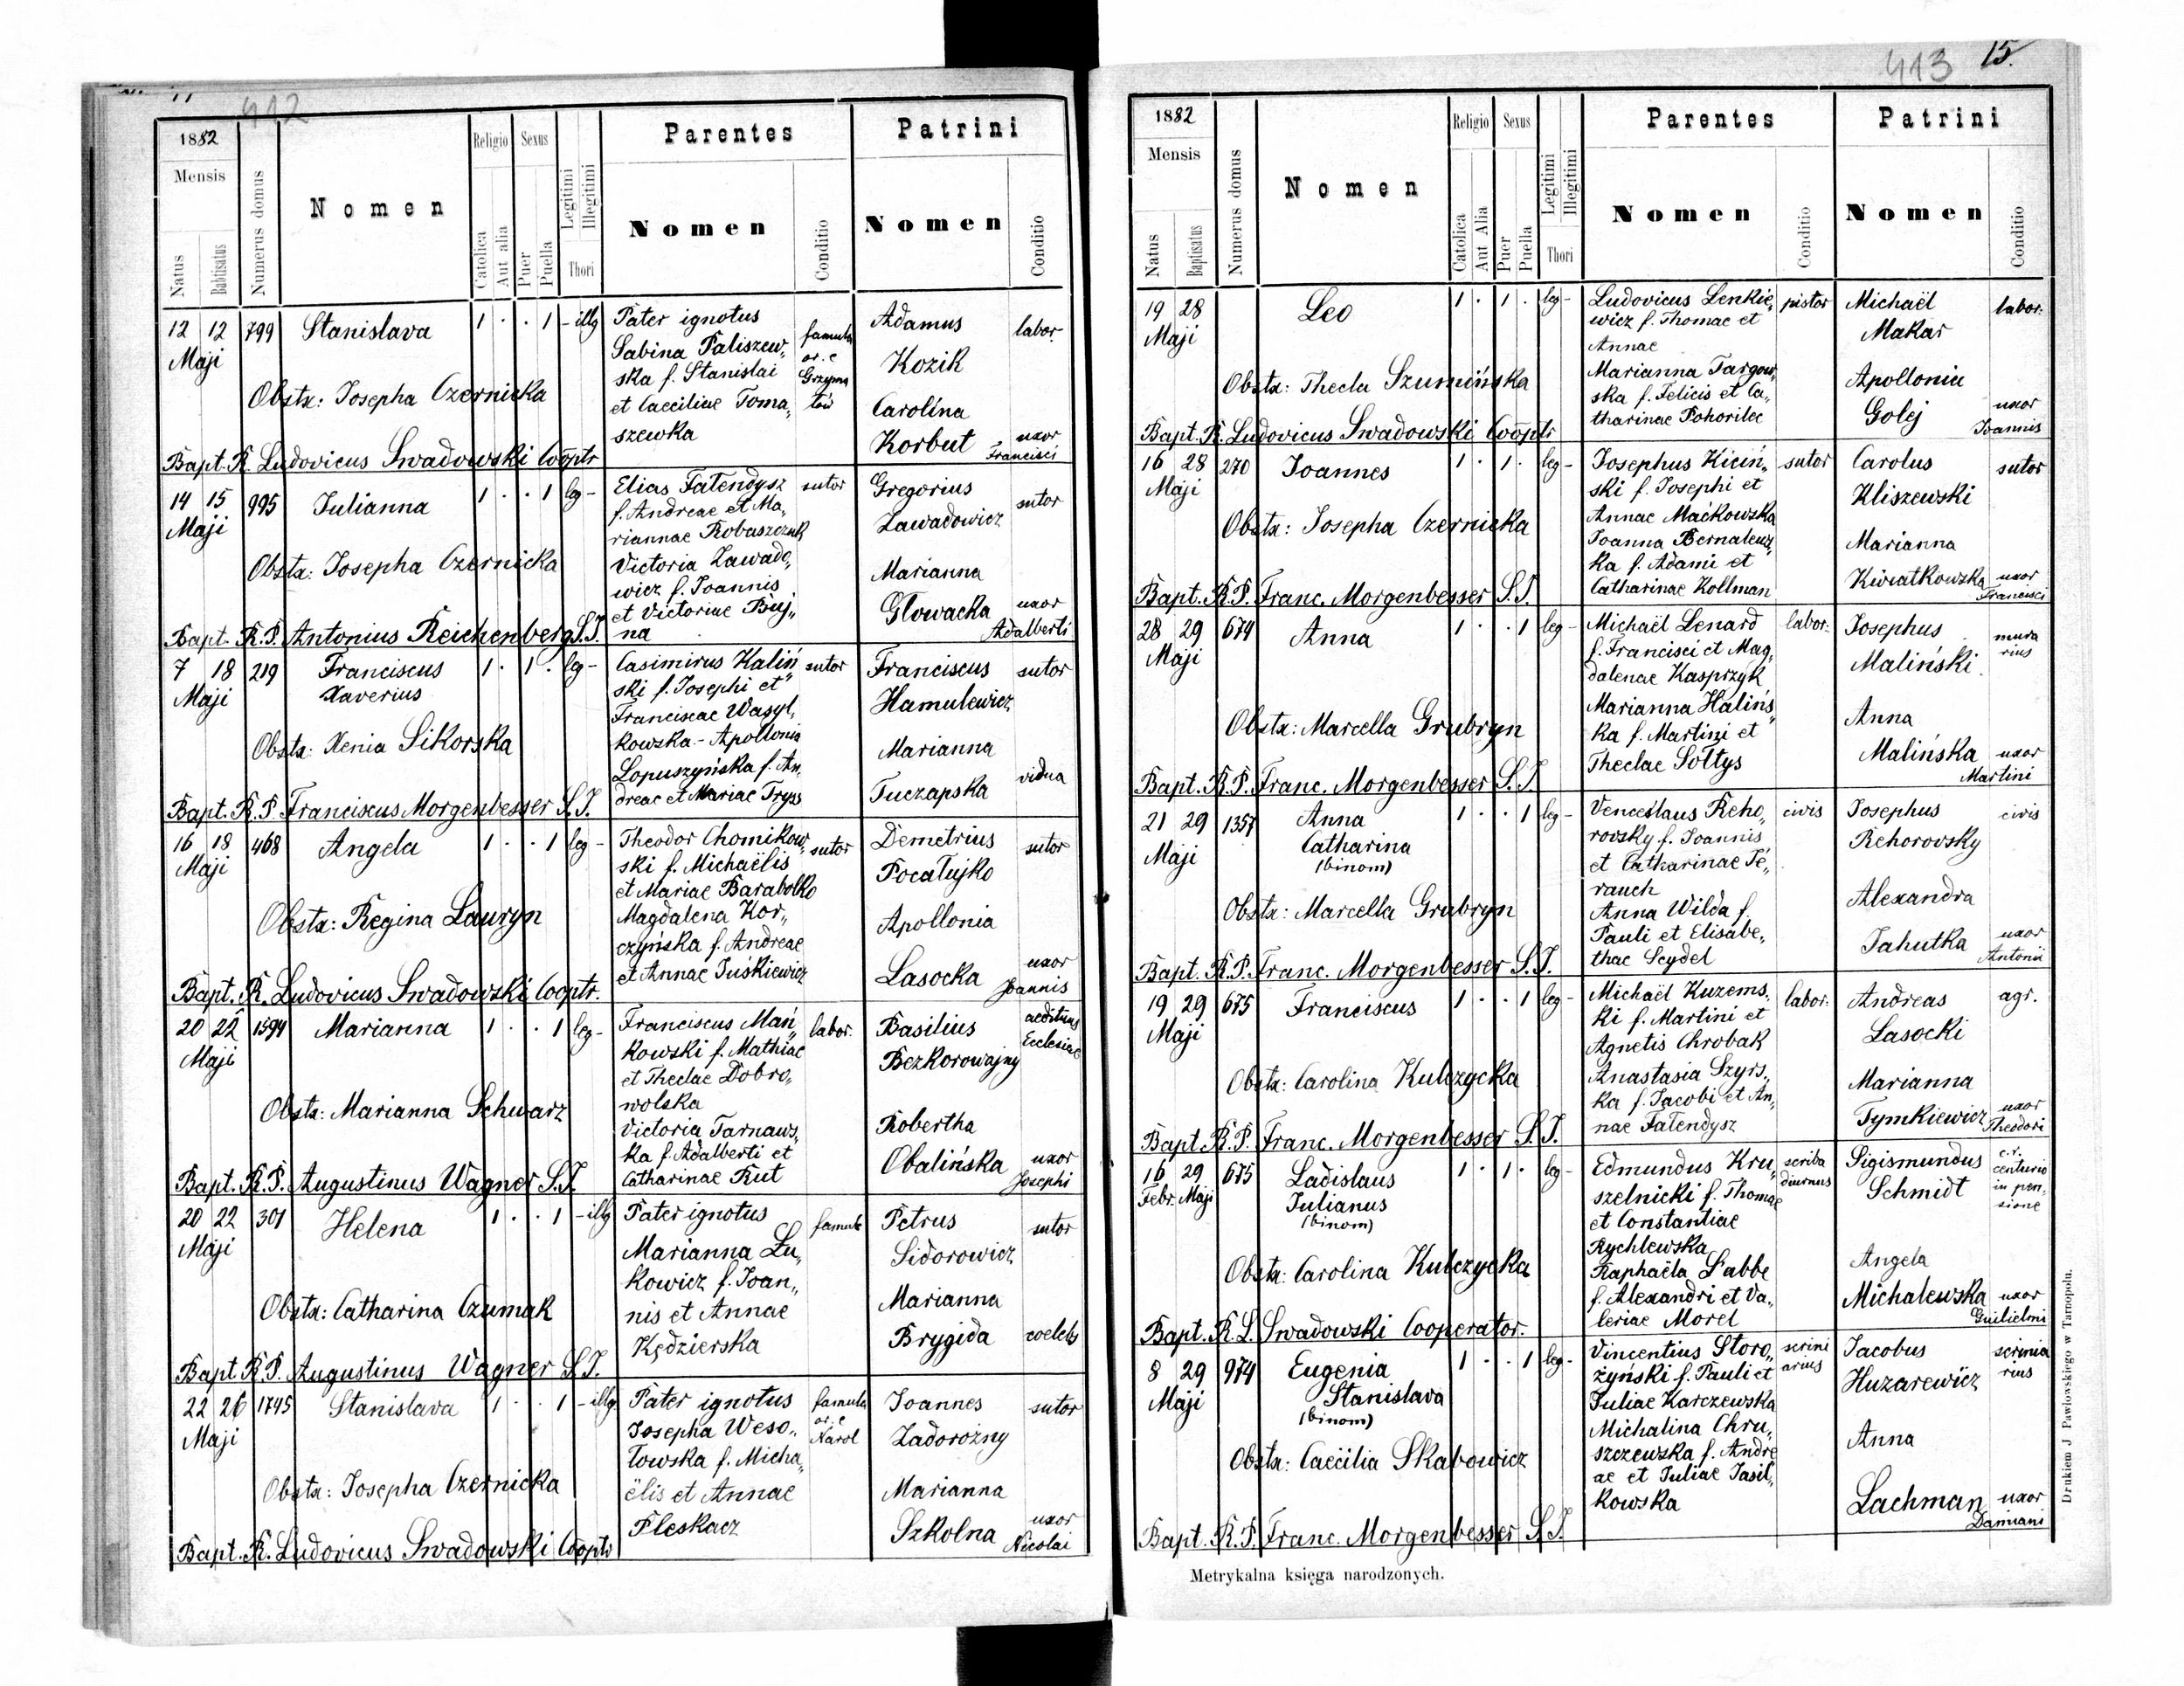 412
1882
Mensis
Natus
Babtisatus
Numerus domus
Nomen
Religio
Catolica
Aut alia
Sexus
Puer
Puella
Legitimi
Illegitimi
Thori
Parentes
Nomen
Conditio
Patrini
Nomen
Conditio
12 12 799 Stanislava 1 . . 1 - illg
Maji
Obstx: Josepha Czernicka
Bapt. R. Ludovicus Swadowski Cooptr
Pater ignotus
Sabina Paliszew„
ska f. Stanislai
et Caeciliae Toma„
szewka
famula
or. e
Grzyma
łów
Adamus
Kozik
labor.
Carolina
Korbut
uxor
Francisci
14 15 995 Julianna 1 . . 1 leg -
Maji
Obstx: Josepha Czernicka
Bapt. R.P. Antonius Reichenberg S.J.
Elias Fatendysz
f. Andreae et Ma„
riannae Robaszczuk
Victoria Zawado„
wicz f. Joannis
et Victoriae Buj„
na
sutor
Gregorius
Zawadowicz
sutor
Marianna
Głowacka
uxor
Adalberti
7 18 219 Franciscus 1 . 1 . leg -
Maji Xaverius
Obstx: Xenia Sikorska
Bapt. R.P. Franciscus Morgenbesser S.J.
Casimirus Kaliń„
ski f. Josephi et
Franciscae Wasyl„
kowska - Apollonia
Łopuszyńska f. An„
dreae et Mariae Tryss
sutor
Franciscus
Hamulewicz
sutor
Marianna
Tuczapska
vidua
16 18 468 Angela 1 . . 1 leg -
Maji
Obstx: Regina Lauryn
Bapt. R. Ludovicus Swadowski Cooptr.
Theodor Chomikow„
ski f. Michaëlis
et Mariae Barabolko
Magdalena Kor„
czyńska f. Andreae
et Annae Juśkiewicz
sutor
Demetrius
Pocałujko
sutor
Apollonia
Lasocka
uxor
Joannis
20 22 1594 Marianna 1 . . 1 leg -
Maji
Obstx: Marianna Schwarz
Bapt. R.P. Augustinus Wagner S.J.
Franciscus Mań„
kowski f. Mathiae
et Theclae Dobro„
wolska
Victoria Tarnaws„
ka f. Adalberti et
Catharinae Rut
labor.
Basilius
Bezkorowajny
aedituus
Ecclesiae
Robertha
Obalińska
uxor
Josephi
20 22 301 Helena 1 . . 1 - illg
Maji
Obstx: Catharina Czumak
Bapt R.P. Augustinus Wagner S.J.
Pater ignotus
Marianna Łu„
kowicz f. Joan„
nis et Annae
Kędzierska
famula
Petrus
Sidorowicz
sutor
Marianna
Brygida
coelebs
22 26 1745 Stanislava 1 . . 1 - illg
Maji
Obstx: Josepha Czernicka
Bapt. R. Ludovicus Swadowski Cooptr
Pater ignotus
Josepha Weso„
łowska f. Micha„
ëlis et Annae
Pleskacz
famula
or. e
Narol
Joannes
Zadorożny
sutor
Marianna
Szkolna
uxor
Nicolai
413 15.
1882
Mensis
Natus
Baptisatus
Numerus domus
Nomen
Religio
Catolica
Aut Alia
Sexus
Puer
Puella
Legitimi
Illegitimi
Thori
Parentes
Nomen
Conditio
Patrini
Nomen
Conditio
19 28 Leo 1 . 1 . leg -
Maji
Obstx: Thecla Szumińska
Bapt. R. Ludovicus Swadowski Cooptr
Ludovicus Lenkie„
wicz f. Thomae et
Annae
Marianna Targow„
ska f. Felicis et Ca„
tharinae Pohorilec
pistor
Michaël
Makar
labor.
Apollonia
Golej
uxor
Joannis
16 28 270 Joannes 1 . 1 . leg -
Maji
Obstx: Josepha Czernicka
Bapt. R.P. Franc. Morgenbesser S.J.
Josephus Kiciń„
ski f. Josephi et
Annae Maćkowska
Joanna Bernalews„
ka f. Adami et
Catharinae Kollman
sutor
Carolus
Kliszewski
sutor
Marianna
Kwiatkowska
uxor
Francisci
28 29 674 Anna 1 . . 1 leg -
Maji
Obstx: Marcella Grubryn
Bapt. R.P. Franc. Morgenbesser S.J.
Michaël Lenard
f. Francisci et Mag„
dalenae Kasprzyk
Marianna Halińs„
ka f. Martini et
Theclae Sołtys
labor.
Josephus
Maliński
mura
rius
Anna
Malińska
uxor
Martini
21 29 1357 Anna 1 . . 1 leg -
Maji Catharina
(binom)
Obstx: Marcella Grubryn
Bapt. R.P. Franc. Morgenbesser S.J.
Venceslaus Reho„
rovsky f. Joannis
et Catharinae Je„
rauch
Anna Wilda f.
Pauli et Elisabe„
thae Seydel
civis
Josephus
Rehorovsky
civis
Alexandra
Jahutka
uxor
Antonii
19 29 675 Franciscus 1 . . 1 leg -
Maji
Obstx: Carolina Kulczycka
Bapt. R.P. Franc. Morgenbesser S.J.
Michaël Kuzems„
ki f. Martini et
Agnetis Chrobak
Anastasia Szyrs„
ka f. Jacobi et An„
nae Fatendysz
labor.
Andreas
Lasocki
agr.
Marianna
Tymkiewicz
uxor
Theodori
16 29 675 Ladislaus 1 . 1 . leg -
Febr. Maji Julianus
(binom)
Obstx: Carolina Kulczycka
Bapt. R. L. Swadowski Cooperator.
Edmundus Kru„
szelnicki f. Thomae
et Constantiae
Rychlewska
Raphaëla L'abbe
f. Alexandri et Va„
leriae Morel
scriba
diurnus
Sigismundus
Schmidt
c.r.
centurio
in pen„
sione
Angela
Michalewska
uxor
Guilielmi
8 29 974 Eugenia 1 . . 1 leg -
Maji Stanislava
(binom)
Obstx: Caecilia Skabowicz
Bapt. R.P. Franc. Morgenbesser S.J.
Vincentius Storo„
żyński f. Pauli et
Juliae Karczewska
Michalina Chru„
szczewska f. Andre
ae et Juliae Jasil„
kowska
scrini
arius
Jacobus
Huzarewicz
scrinia
rius
Anna
Lachman
uxor
Damiani
Metrykalna księga narodzonych.
Drukiem J Pawłowskiego w Tarnopolu.